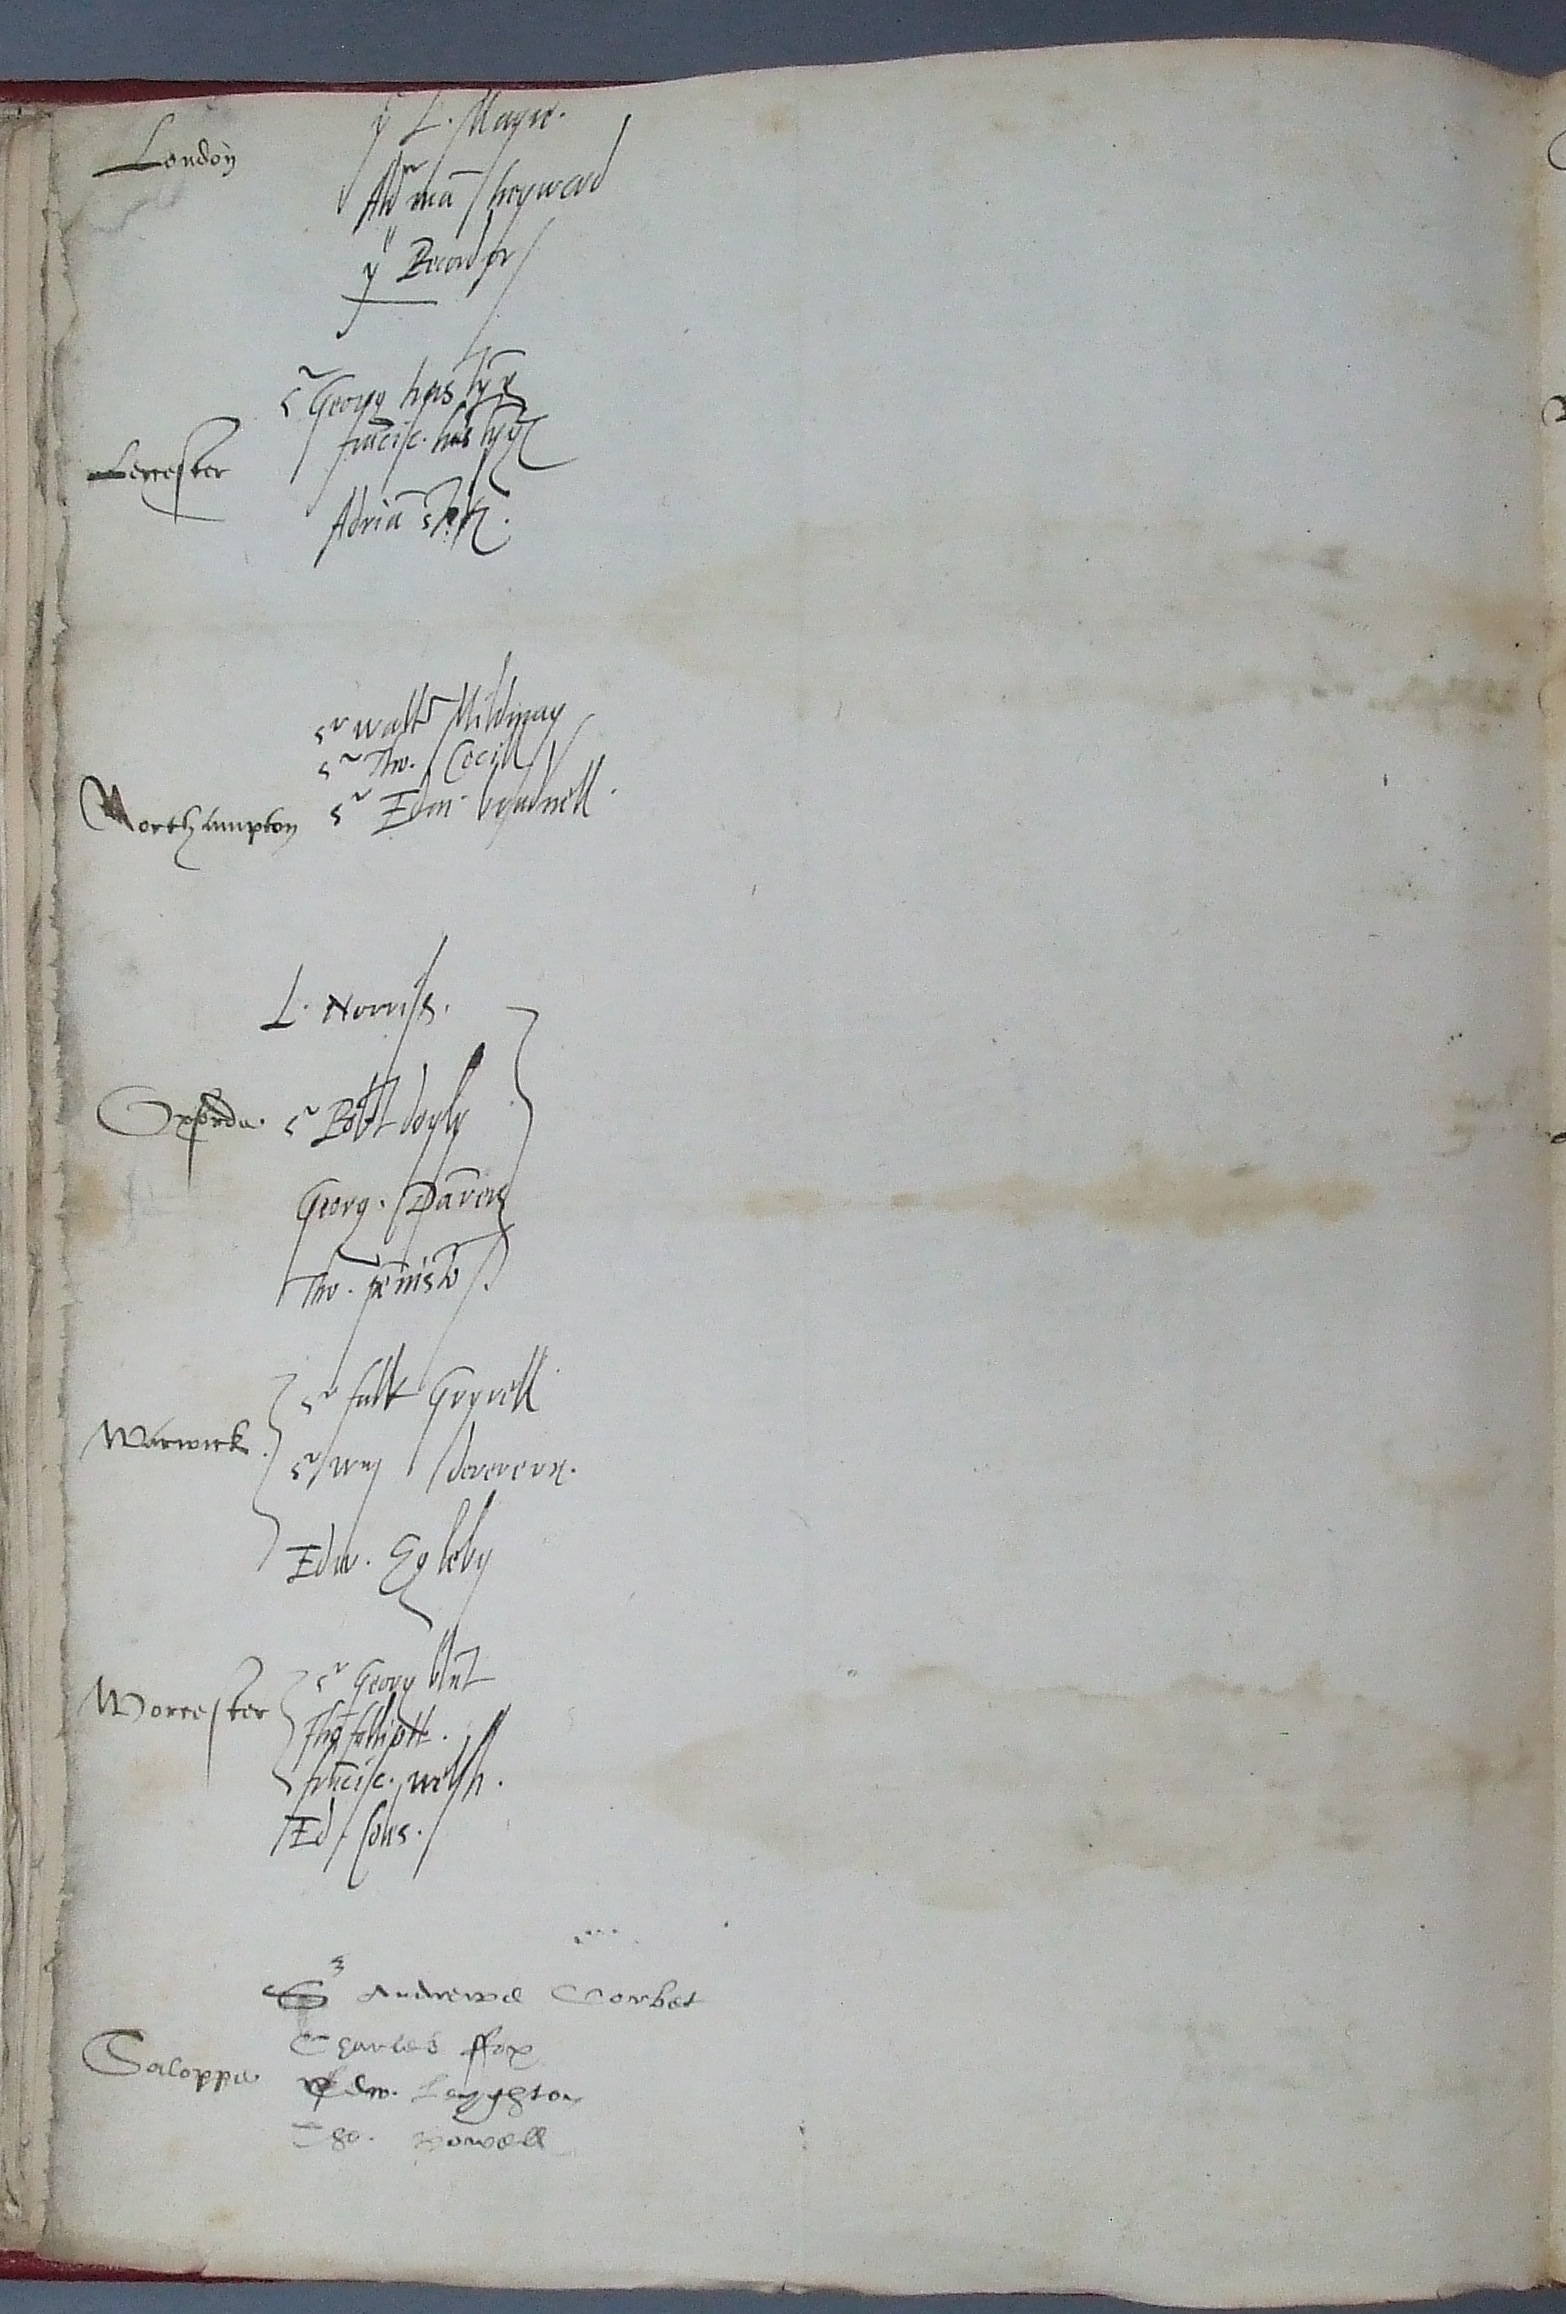 London
y L. Mayor.
Aldrmā heyward
ye Recorder
Leicester
Sr Georg hastyngs
francisc. hastyngs
Adriā stok.
Northampton
Sr Walter Mildmay
Sr Tho. Cecill
Sr Edm. brudnell.
Oxforde.
L. Norriss.
Sr Robt doyly
Georg. Dāvers
Tho. pēnisto
Warwick.
Sr fulk Grevell
Sr Wm deverevx.
Edw. Egleby
Worcester
Sr Georg blūt
Tho folliott.
francisc. welsh.
Ed. Coles.
Saloppe
Sr Andrewe Corbet
Charles ffox
Edw. Leyghton
Tho. Powell